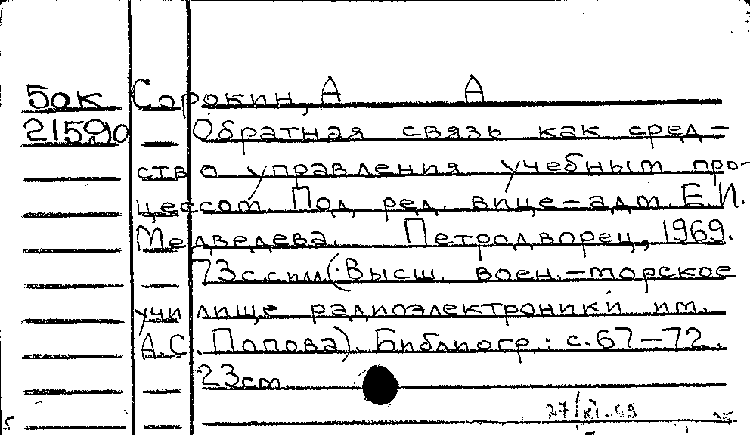 5ок Сорокин, А А
21590 Обратная связь как сред-
ство управления учебным про-
цессом. Под ред. вице-адм. Е.И.
Медведева. Петродворец, 1969.
73с.с илл. (Высш. воен.-морское
училище радиоэлектроники им.
А.С. Попова). Библиогр.: с.67-72.
23см